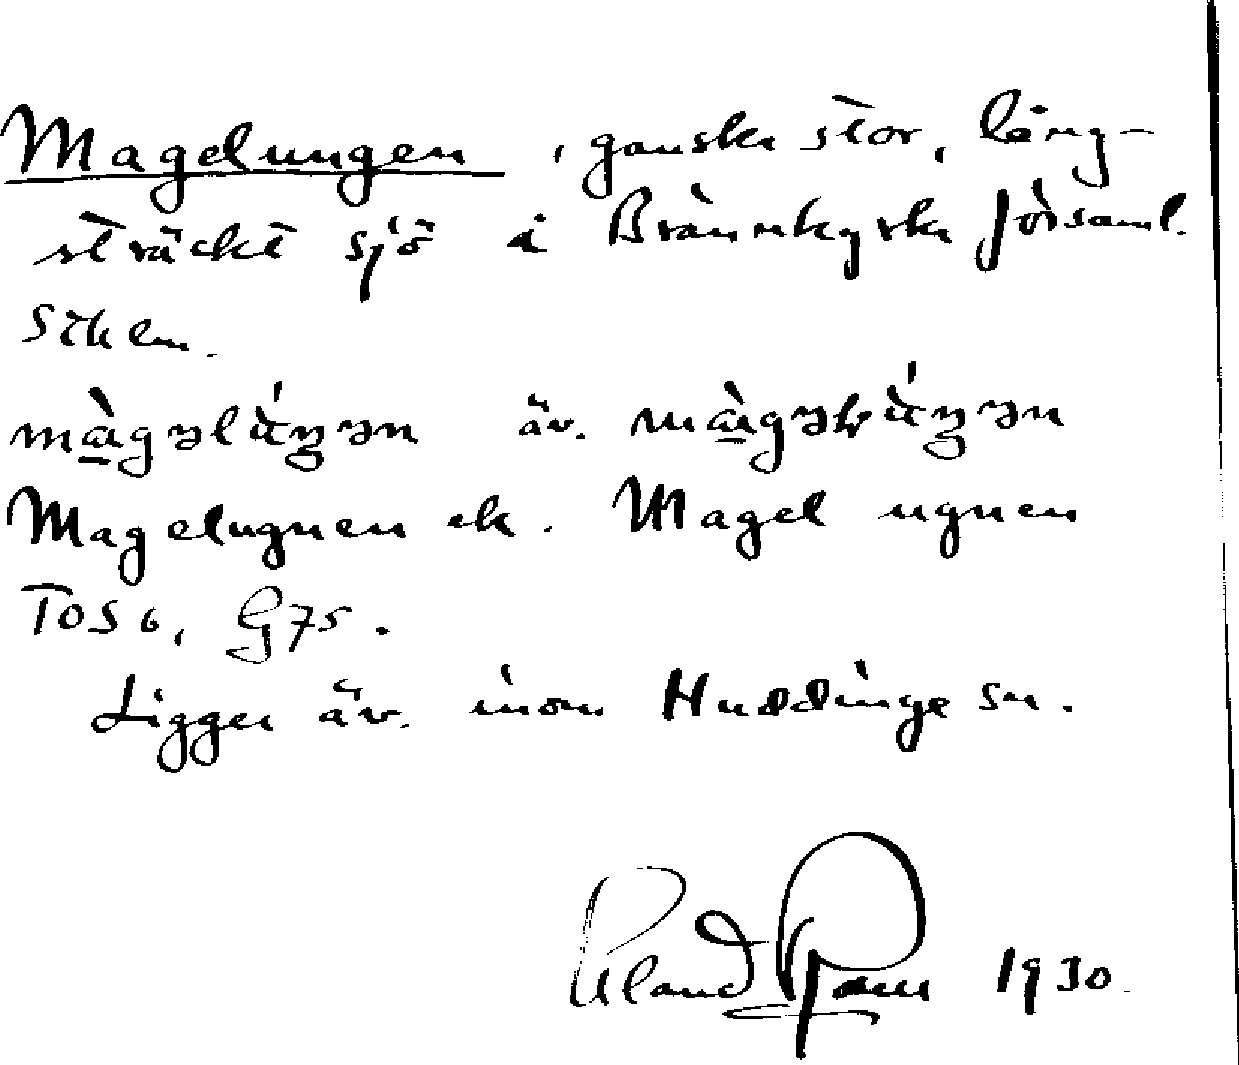 Magelungen, ganska stor, lång-
sträckt sjö i Brännkyrka förs.
Sthlm.
màgəlúŋən äv. màgəlúŋən
Magelugnen ek. Magel ugnen
TOS 6, G75.
Ligger äv. inom Huddinge sn.
1930